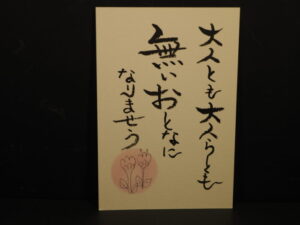 大人とも大人らとも
無いおとなに
なりませう